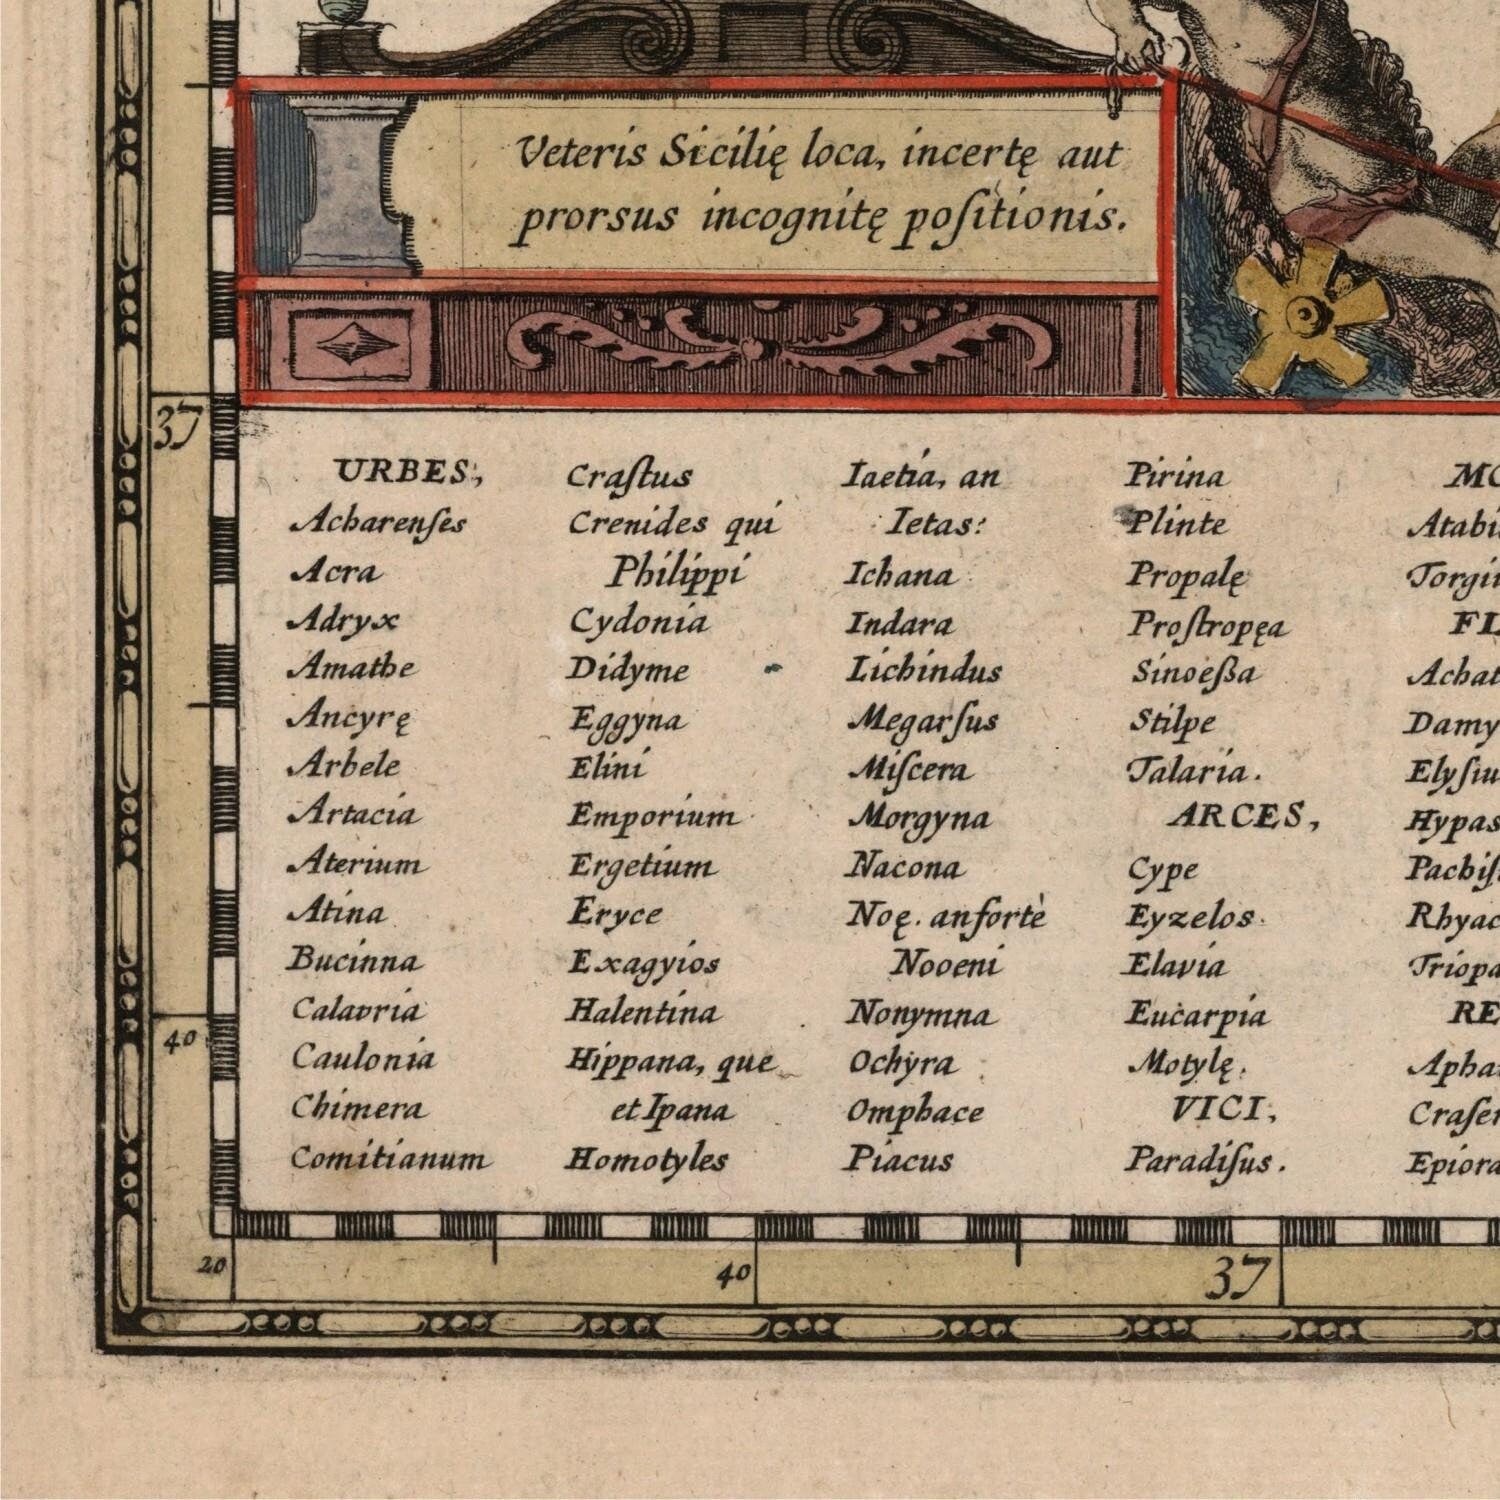 Veteris Sicilię loca, incertę aut
prorsus incognitę poſitionis.
URBES,
Acharenſes
Acra
Adryx
Amathe
Ancyrę
Arbele
Artacia
Aterium
Atina
Bucinna
Calavria
Caulonia
Chimera
Comitianum
Craſtus
Crenides qui
Philippi
Cydonia
Didyme
Eggyna
Elini
Emporium
Ergetium
Eryce
Exagyios
Halentina
Hippana, que
et Ipana
Homotyles
Iaetia, an
Ietas:
Ichana
Indara
Lichindus
Megarſus
Miſcera
Morgyna
Nacona
Noę. an fortè
Nooeni
Nonymna
Ochyra
Omphace
Piacus
Pirina
Plinte
Propalę
Proſtropęa
Sinoeſsa
Stilpe
Talaria.
ARCES,
Cype
Eyzelos
Elavia
Eucarpia
Motylę.
VICI,
Paradiſus.
MO
Atabi
Torgi
FL
Achat
Damy
Elyſiu
Hypas
Pachiſ
Rhyac
Triopa
RE
Apha
Craſer
Epiora
37
40
20
40
37